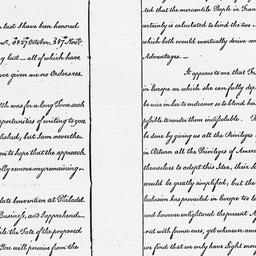 last I have been honored
27 October, 30 Novr.
last - all of which have
given me no Orders, nor
th was for a long Time such
opportunities of writing to you
blished; but I am neverthe=
to hope that the approach
ally remove my remaining
late Convention at Philadel
Business, and I apprehend
the Fate of the proposed
You will perceive from the
ted that the mercantile People in Fran
certainly is calculated to bind the two
which both would eventually derive com
Advantages. -
It appears to me that Fra
in Europe on which she can fully dep
be wise in her to endeavor so to blend her
possible to render them indissoluble.
be done by giving us all the Privileges
in Return all the Privileges of Americ
themselves to adopt this Idea, their
would be greatly simplified; but the
Exclusion has prevailed in Europe too lo
and however enlightened the present
out with firmness, yet whenever an
we find that we only have Light enou